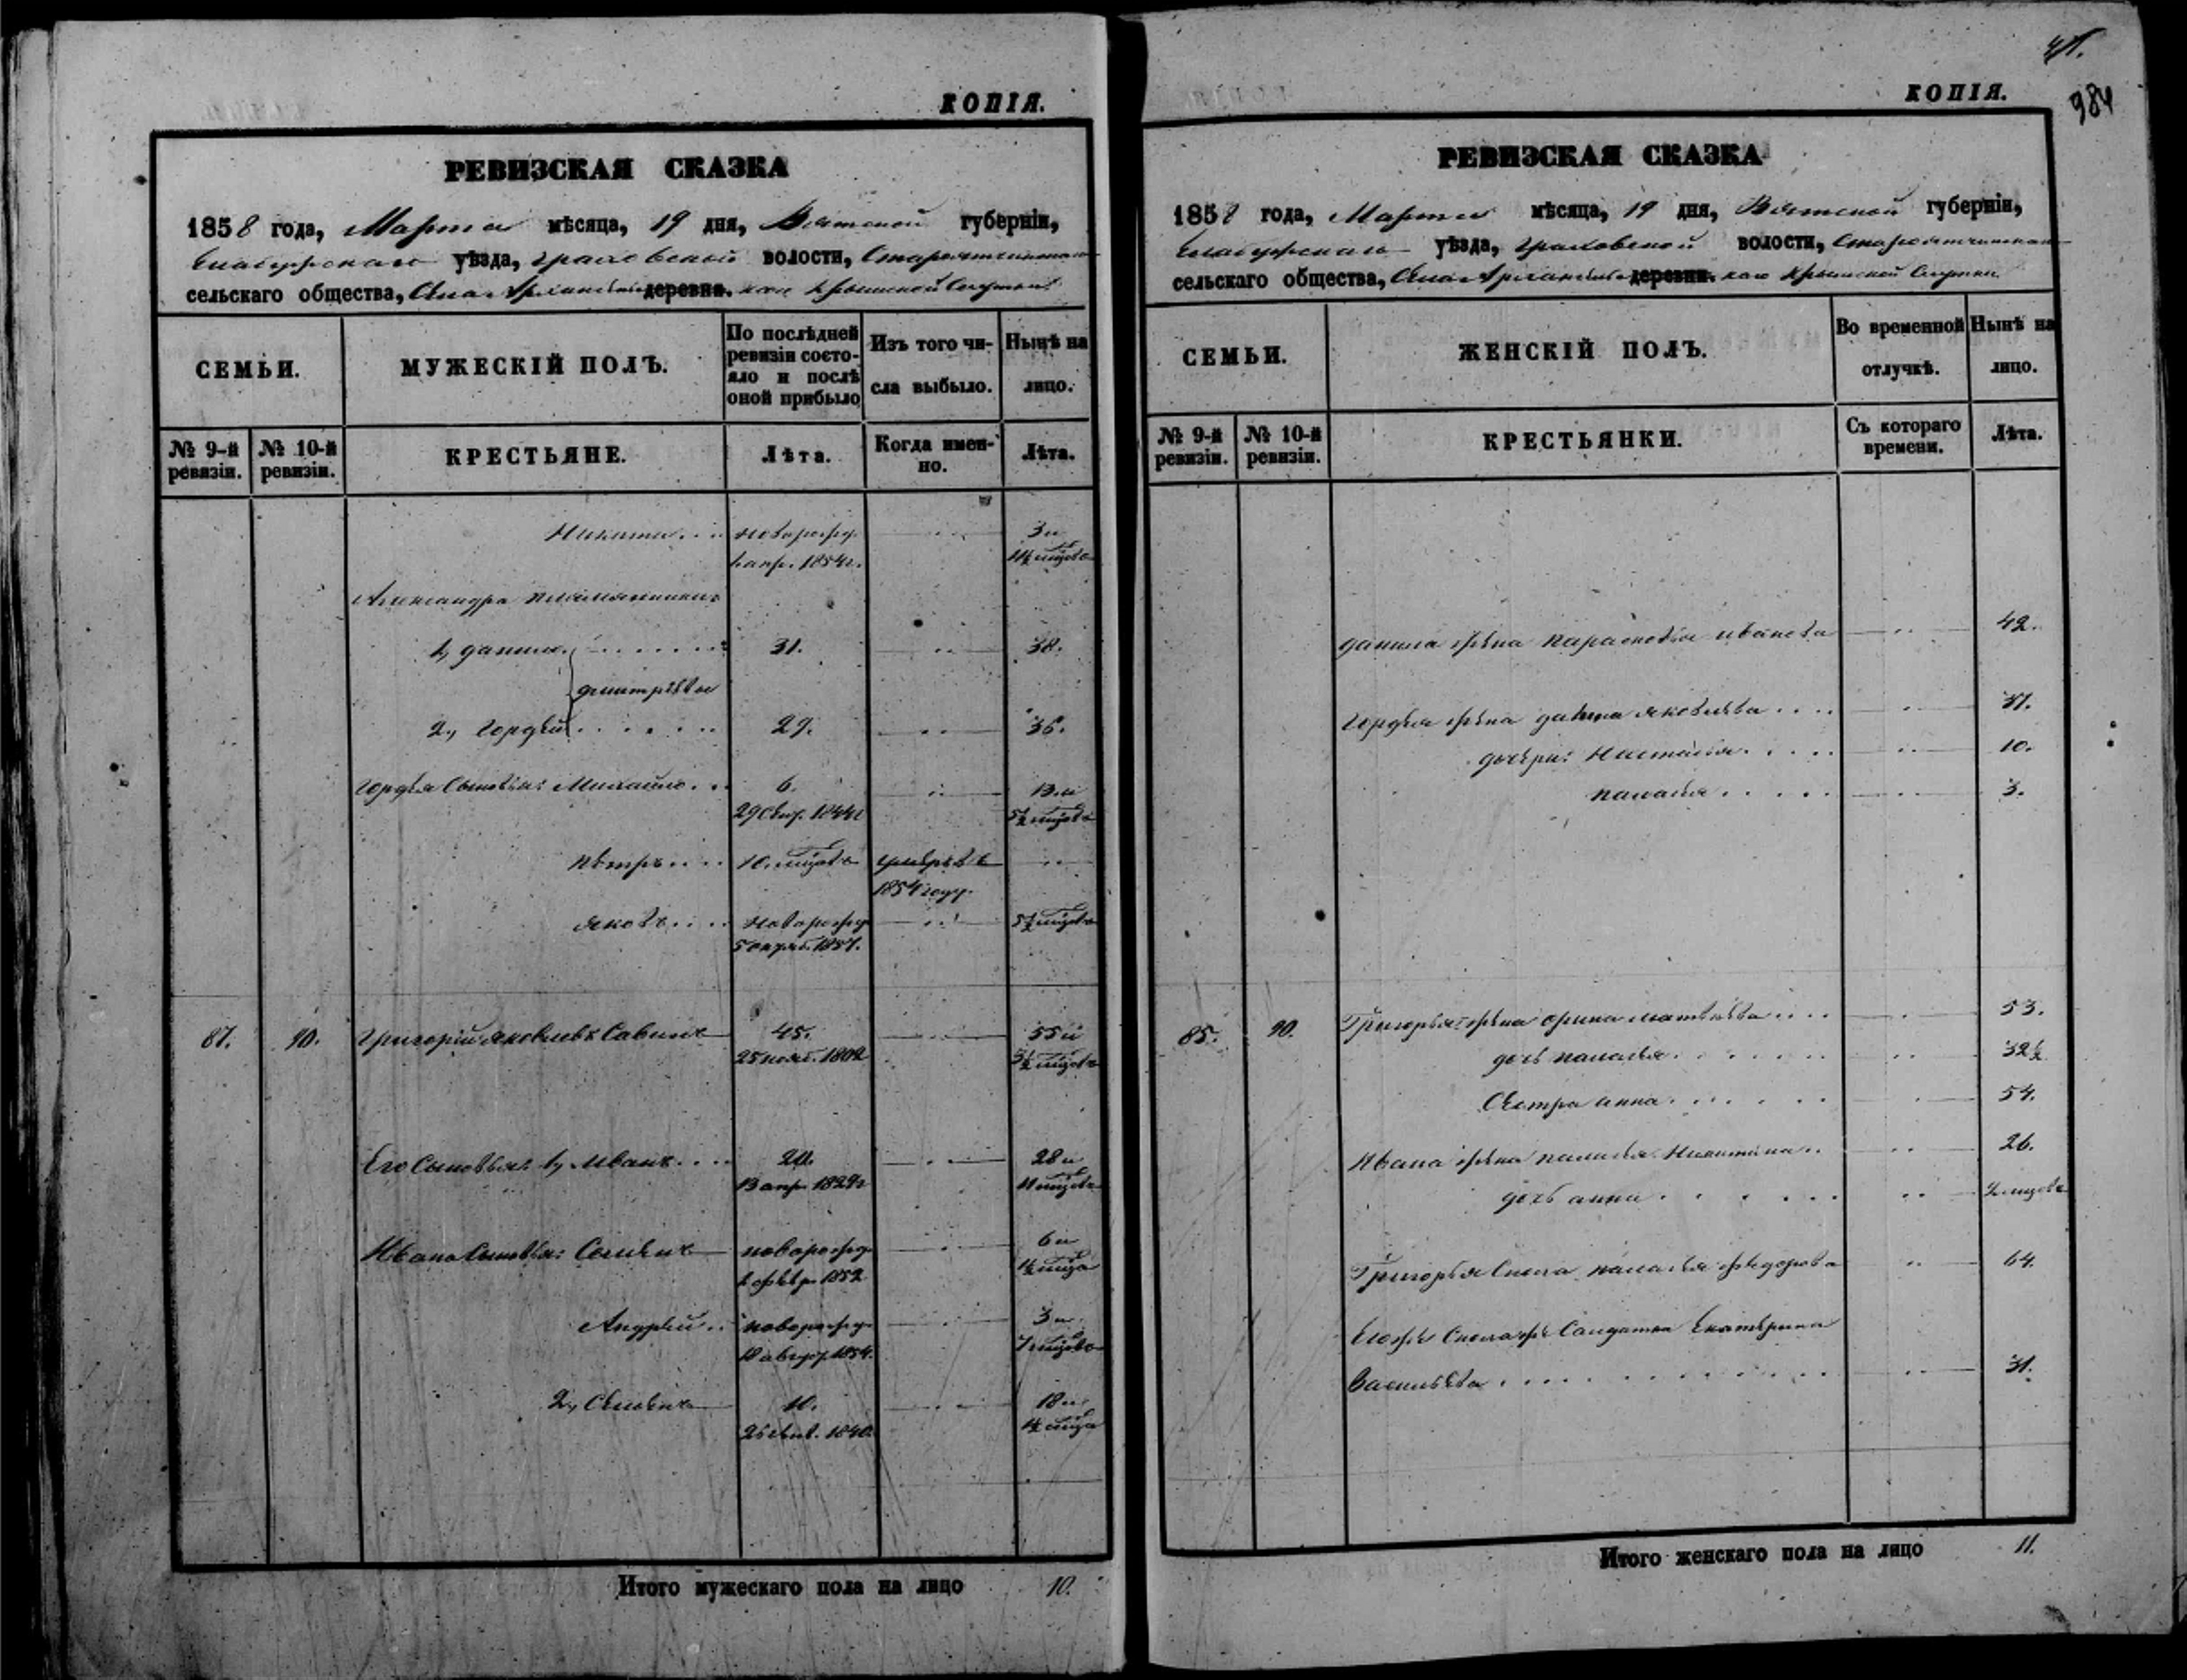 КОПІЯ.
РЕВИЗСКАЯ СКАЗКА
1858 года, Марта мѣсяца, 19 дня, Вятской губерніи,
Елабужскаго уѣзда, Граховской волости,
сельскаго общества, Села деревни. Крымской Слудки
СЕМЬИ.
МУЖЕСКІЙ ПОЛЪ.
По послѣдней ревизіи состояло и послѣ оной прибыло
Изъ того числа выбыло.
Нынѣ на лицо.
№ 9-й ревизіи.
№ 10-й ревизіи.
КРЕСТЬЯНЕ.
Лѣта.
Когда именно.
Лѣта.
Никита . . новорожд. 3 и
1 апр. 1854 г. 11½ мѣсяцовъ
Александра племянники:
1, Данило 31. 38.
Дмитріевы
2, Гордѣй 29. 36.
Гордѣя сыновья: Михайло . . 6. 13 и
29 сент. 1844 г. 5½ мѣсяцовъ
Петръ . . . 10. мѣсяцовъ умеръ въ
1854 году.
Яковъ . . . новорожд. 5½ мѣсяцовъ
5 октяб. 1857.
87. 90. Григорій Яковлевъ Савинъ 45. 55 и
25 нояб. 1802 3½ мѣсяцовъ
Его сыновья: 1, Иванъ . . . 20. 28 и
13 апр. 1829 г. 11 мѣсяцовъ
Ивана сыновья: Семенъ новорожд. 6 и
февр. 1852 1½ мѣсяца
Андрей . . новорожд. 3 и
18 авгус. 1854. 7 мѣсяцовъ
2, Семенъ 10. 18 и
1840. 1½ мѣсяца
Итого мужескаго пола на лицо 10.
984
КОПІЯ.
РЕВИЗСКАЯ СКАЗКА
1858 года, Марта мѣсяца, 19 дня, Вятской губерніи,
Елабужскаго уѣзда, Граховской волости,
сельскаго общества, Села деревни. Крымской Слудки
СЕМЬИ.
ЖЕНСКІЙ ПОЛЪ.
Во временной отлучкѣ.
Нынѣ на лицо.
№ 9-й ревизіи.
№ 10-й ревизіи.
КРЕСТЬЯНКИ.
Съ котораго времени.
Лѣта.
Данила жена Парасковья Иванова 42.
Гордѣя жена Дарья Яковлева . . . . 37.
дочери: Настасья . . . . 10.
Паладья . . . . . 3.
85. 90. Григорья жена Орина Матвѣева . . . . 53.
дочь Паладья . . . . . . 32½
Сестра Анна . . . . . . 54.
Ивана жена Паладья Никитина . . 26.
дочь Анна . . . . . . 2 мѣсяцовъ
Григорья сноха Паладья Федорова 64.
Егожъ снохажъ Салдатка Екатерина
Васильева . . . . . . . . . . . 31.
Итого женскаго пола на лицо 11.